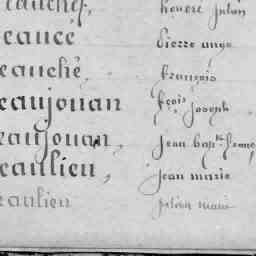 eauchef, honore julien
eauce pierre ange
eauchê, françois
eaujouan fçois joseph
eaujouan, jean bapt françs
eaulieu, jean marie
eaulieu julien marie